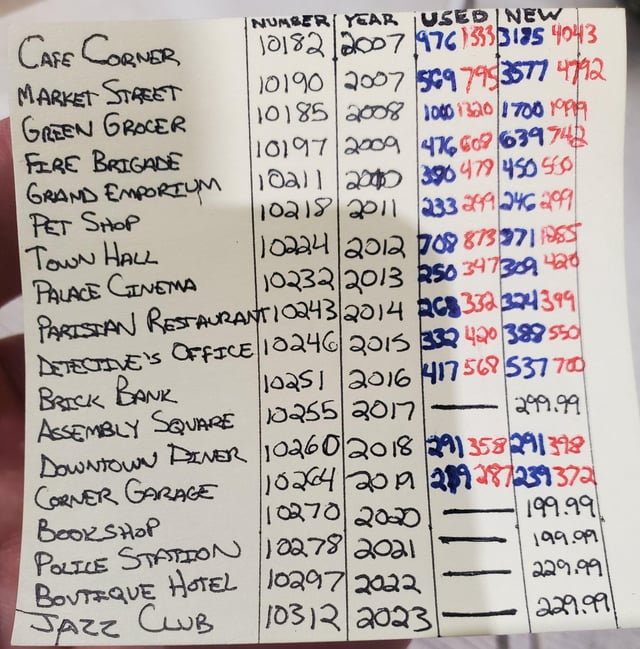 NUMBER YEAR USED NEW
CAFE CORNER 10182 2007 976 1333 3185 4043
MARKET STREET 10190 2007 569 795 3577 4792
GREEN GROCER 10185 2008 1000 1320 1700 1999
FIRE BRIGADE 10197 2009 476 609 639 742
GRAND EMPORIUM 10211 2010 390 479 450 550
PET SHOP 10218 2011 233 299 246 299
TOWN HALL 10224 2012 708 873 971 1285
PALACE CINEMA 10232 2013 250 347 309 420
PARISIAN RESTAURANT 10243 2014 268 332 324 399
DETECTIVE'S OFFICE 10246 2015 332 420 388 550
BRICK BANK 10251 2016 417 568 537 700
ASSEMBLY SQUARE 10255 2017 — 299.99
DOWNTOWN DINER 10260 2018 291 358 291 398
CORNER GARAGE 10264 2019 287 239 372
BOOKSHOP 10270 2020 — 199.99
POLICE STATION 10278 2021 — 199.99
BOUTIQUE HOTEL 10297 2022 — 229.99
JAZZ CLUB 10312 2023 — 229.99